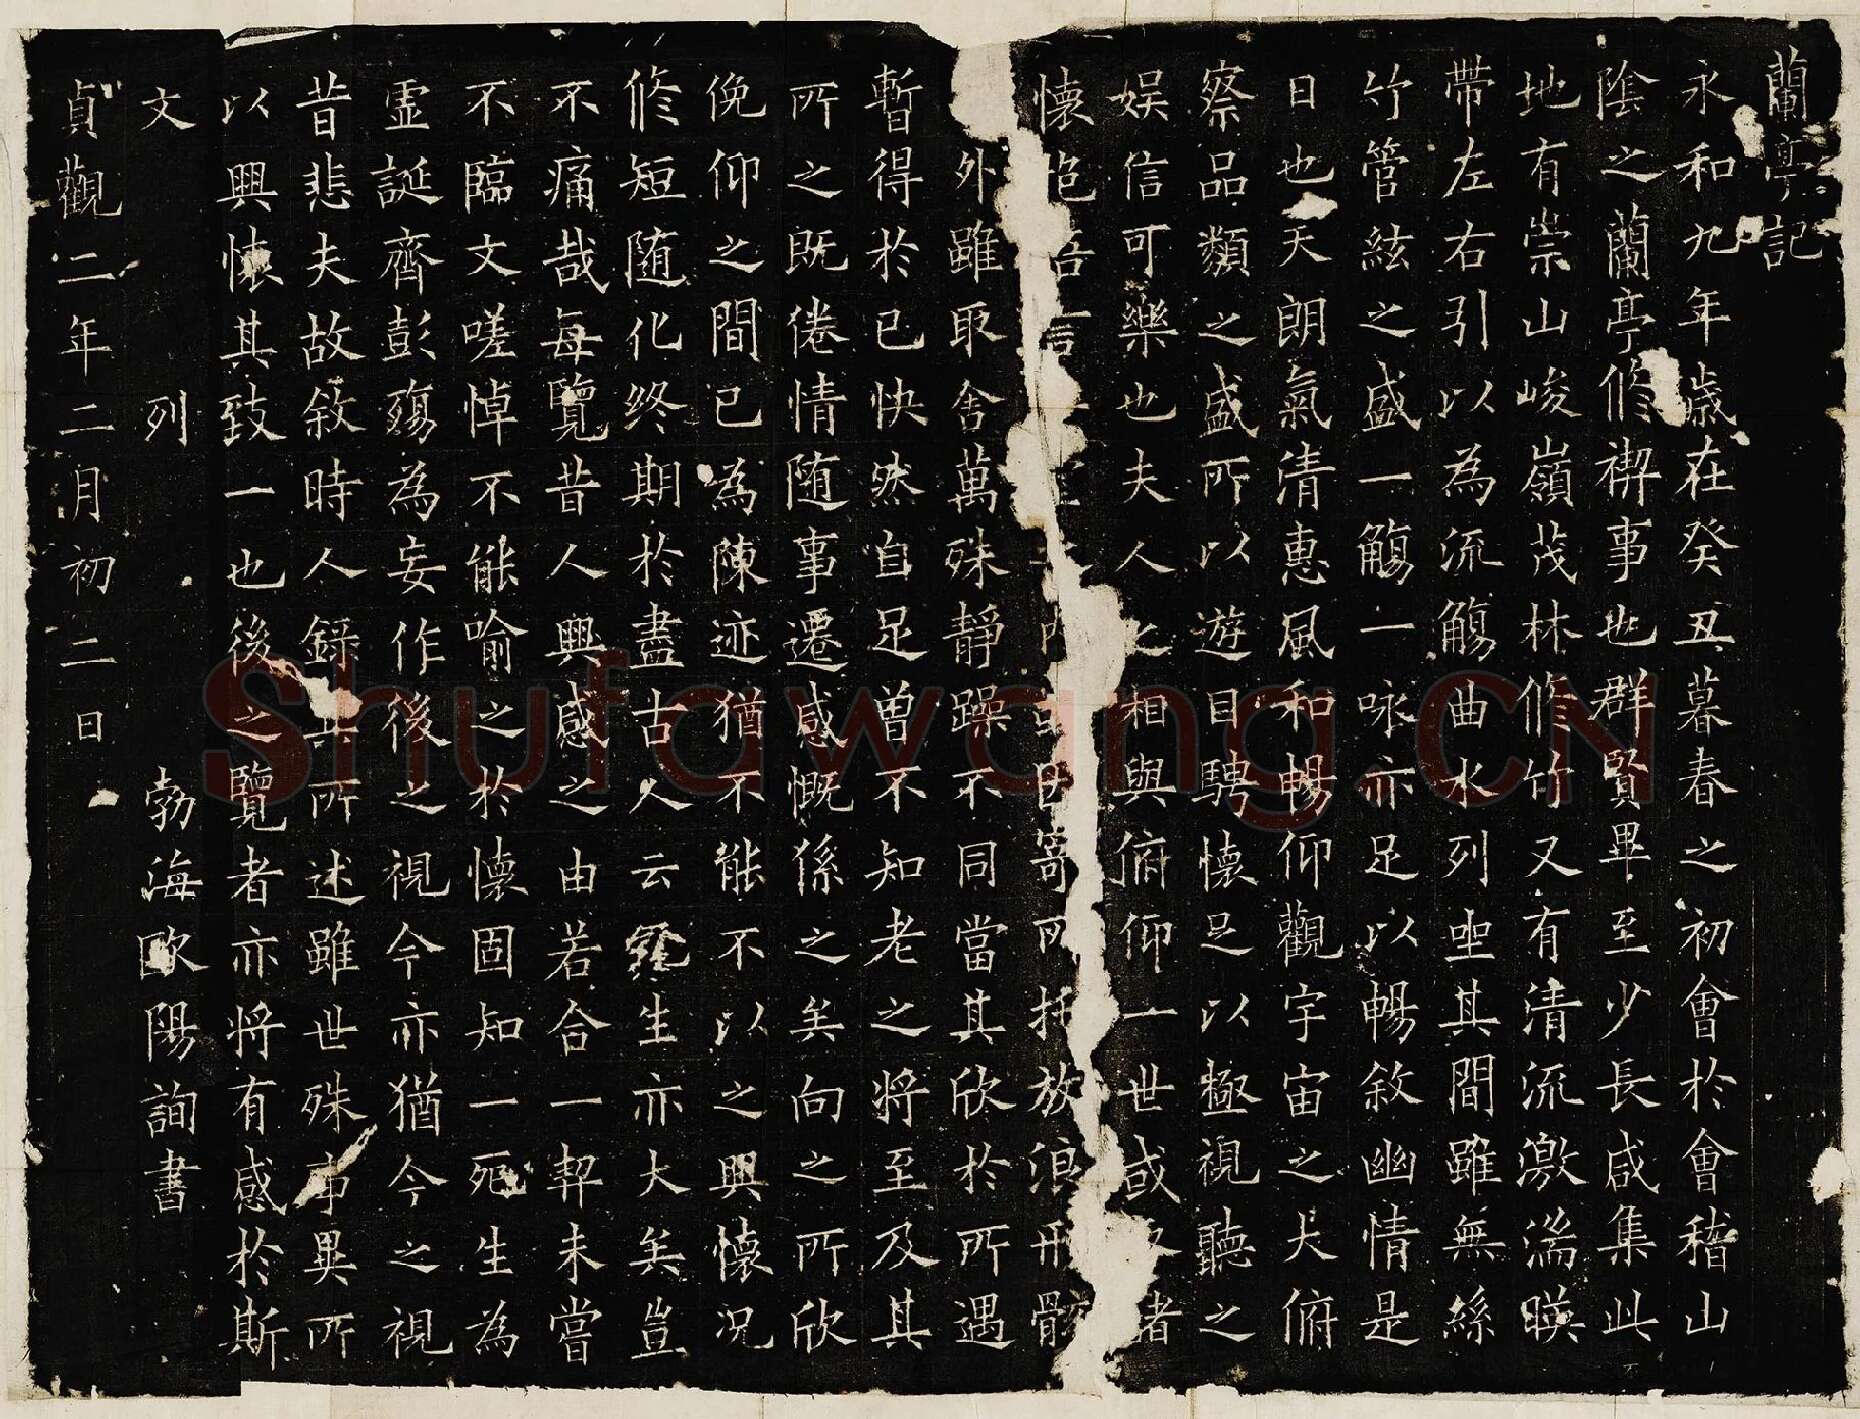 蘭亭記
永和九年歲在癸丑暮春之初會於會稽山
陰之蘭亭脩禊事也群賢畢至少長咸集此
地有崇山峻嶺茂林脩竹又有清流激湍暎
帶左右引以為流觴曲水列坐其間雖無絲
竹管絃之盛一觴一咏亦足以暢敘幽情是
日也天朗氣清惠風和暢仰觀宇宙之大俯
察品類之盛所以遊目騁懷足以極視聽之
娛信可樂也夫人之相與俯仰一世或取諸
懷抱悟言內或因寄所托放浪形骸
外雖取舍萬殊靜躁不同當其欣於所遇
暫得於己快然自足曾不知老之將至及其
所之既倦情隨事遷感慨係之矣向之所欣
俛仰之間已為陳迹猶不能不以之興懷況
脩短隨化終期於盡古人云死生亦大矣豈
不痛哉每覽昔人興感之由若合一契未嘗
不臨文嗟悼不能喻之於懷固知一死生為
虛誕齊彭殤為妄作後之視今亦猶今之視
昔悲夫故敘時人錄其所述雖世殊事異所
以興懷其致一也後之覽者亦將有感於斯
文 列 勃海歐陽詢書
貞觀二年二月初二日
Shufawang.CN